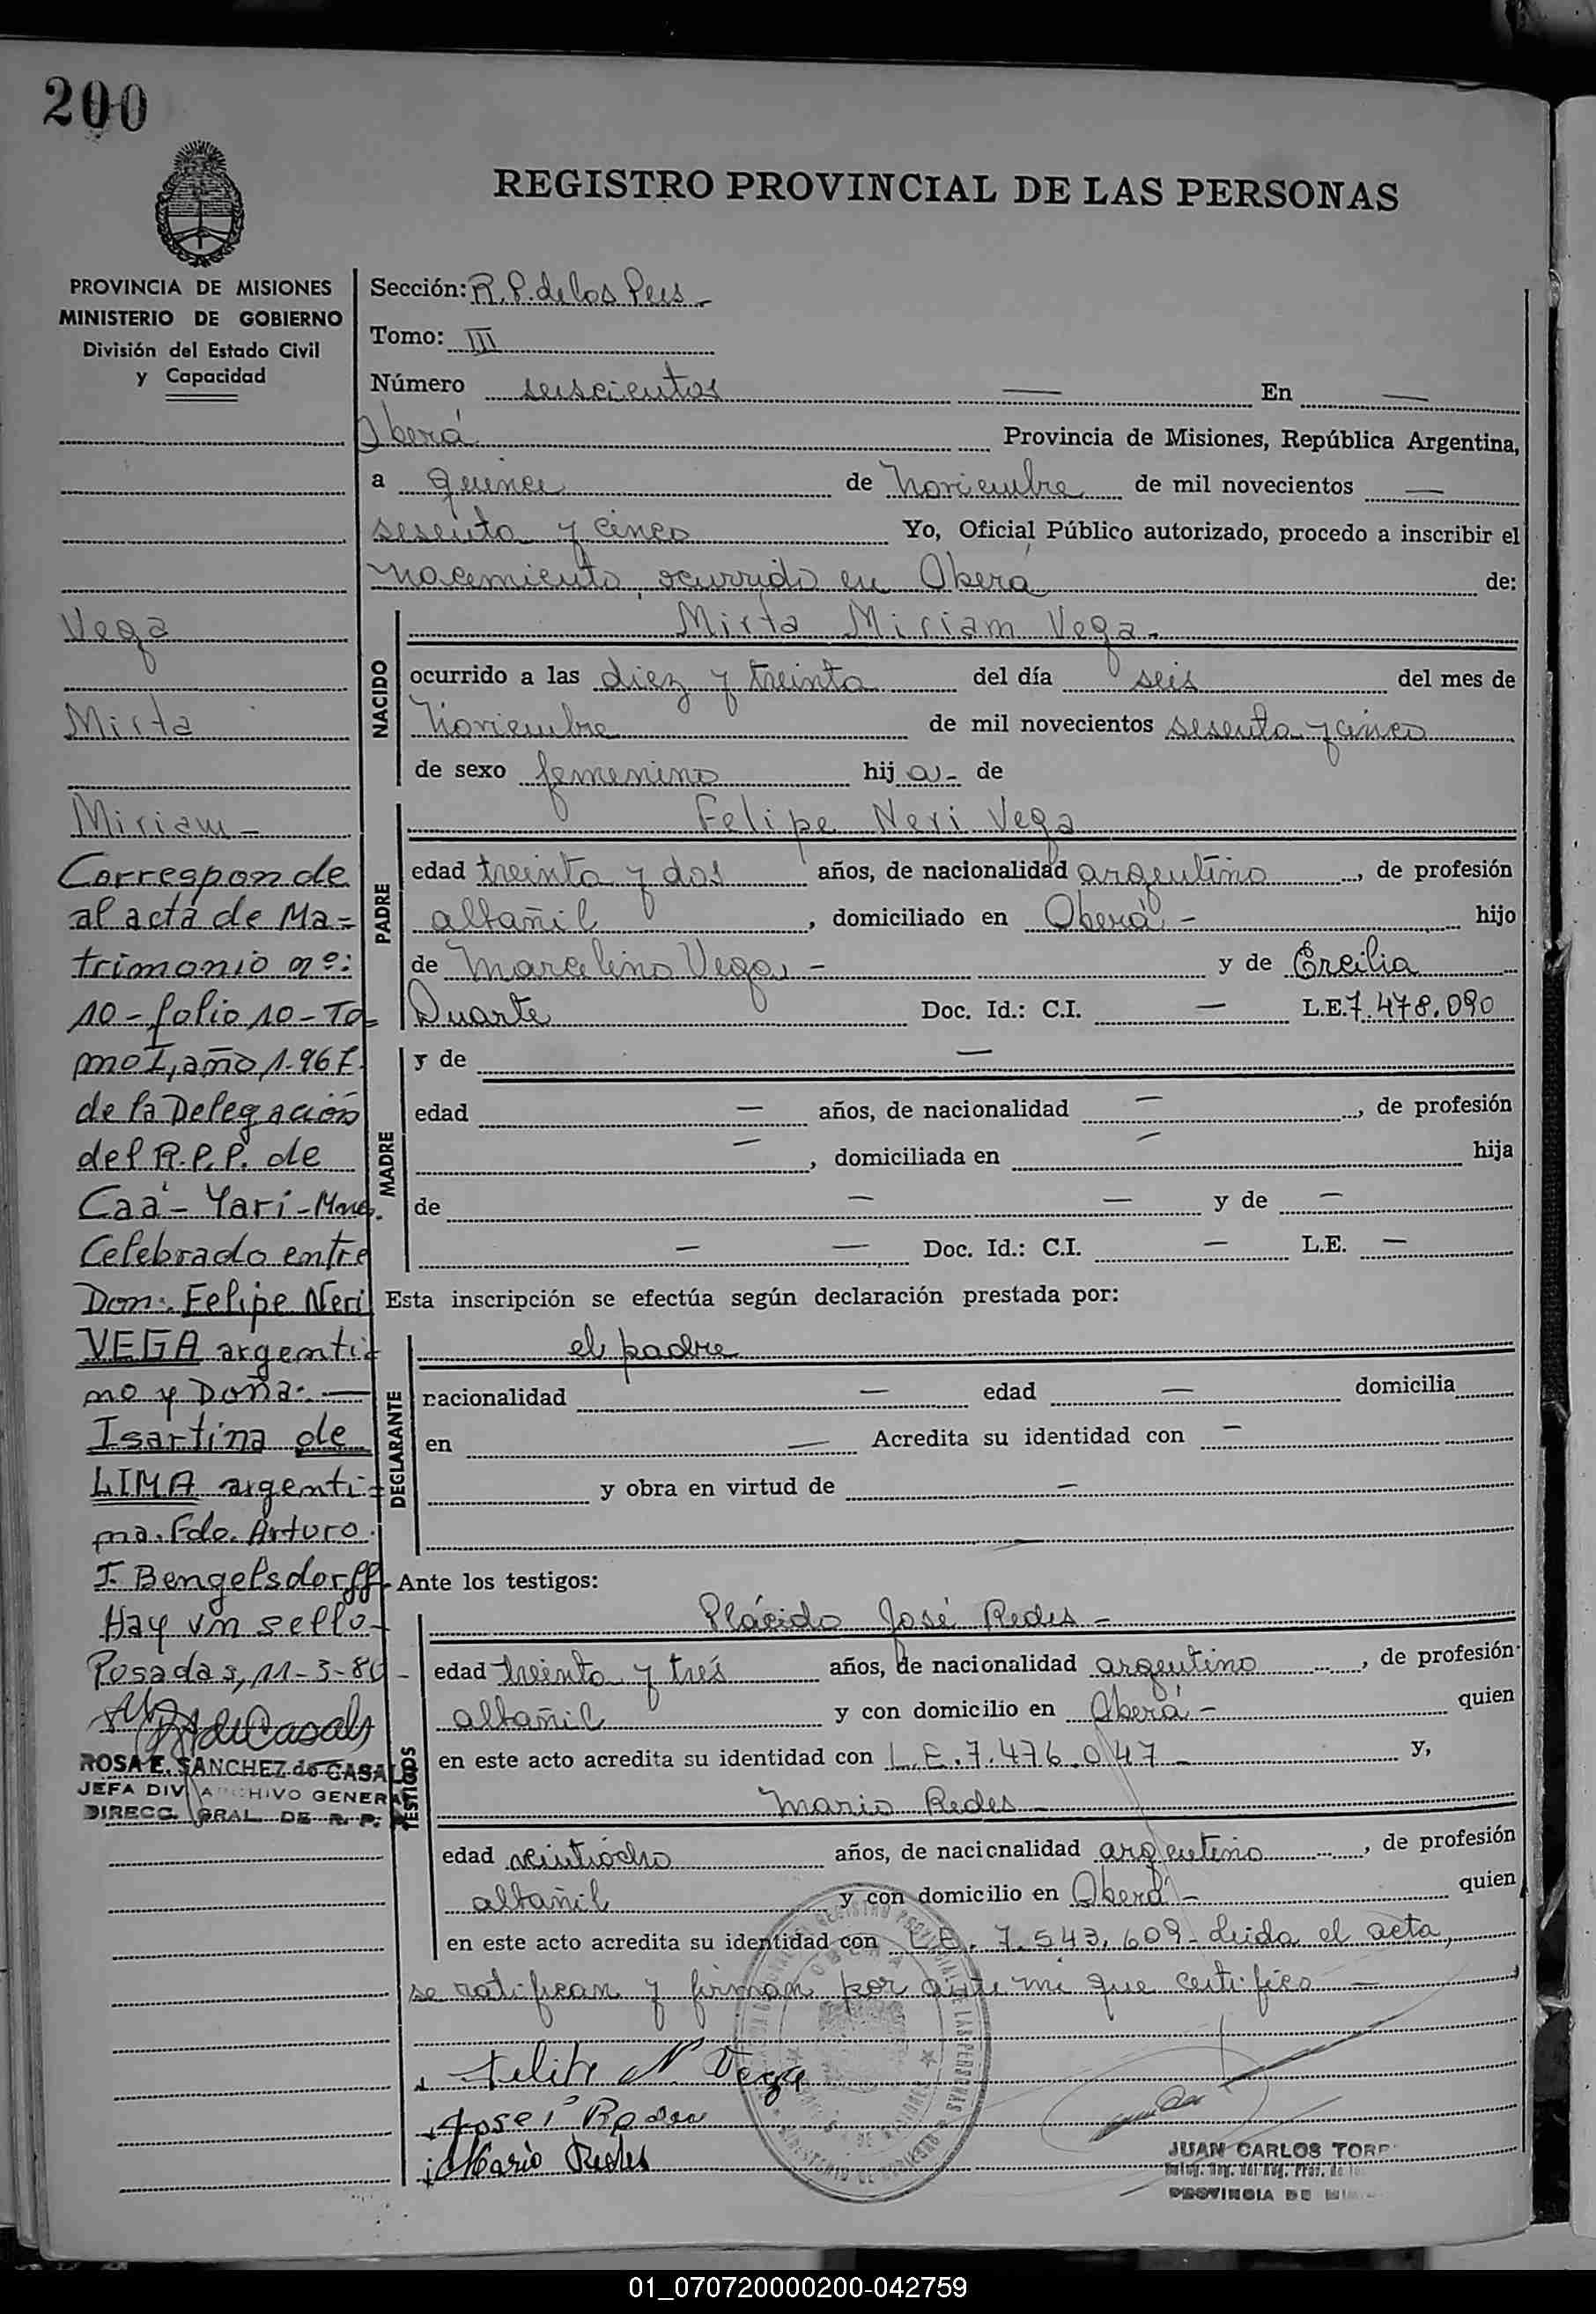 200
REGISTRO PROVINCIAL DE LAS PERSONAS
PROVINCIA DE MISIONES
MINISTERIO DE GOBIERNO
División del Estado Civil
y Capacidad
Vega
Mirta
Miriam -
Corresponde
al acta de Ma=
trimonio nº:
10 - folio 10 - To=
mo I, año 1.967
de la Delegación
del R.P.P. de
Caá - Yarí - Mnes.
Celebrado entre
Don: Felipe Neri
VEGA argenti=
no y Doña: —
Isartina de
LIMA argenti=
na. Fdo. Arturo
J. Bengelsdorff.
Hay un sello -
Posadas, 11-3-80 -
ROSA E. SANCHEZ de CASALS
JEFA DIV ARCHIVO GENERAL
DIRECC. GRAL. DE R. P.
Sección: R. P. de los Pers -
Tomo: III
Número seiscientos — En —
Oberá Provincia de Misiones, República Argentina,
a quince de Noviembre de mil novecientos —
sesenta y cinco Yo, Oficial Público autorizado, procedo a inscribir el
nacimiento ocurrido en Oberá de:
NACIDO
Mirta Miriam Vega -
ocurrido a las diez y treinta del día seis del mes de
Noviembre de mil novecientos sesenta y cinco
de sexo femenino hija - de
PADRE
Felipe Neri Vega
edad treinta y dos años, de nacionalidad argentino, de profesión
albañil, domiciliado en Oberá - hijo
de Marcelino Vega - y de Ercilia
Duarte Doc. Id.: C.I. — L.E. 7.478.090
MADRE
y de —
edad — años, de nacionalidad —, de profesión
—, domiciliada en — hija
de — — y de —
— — Doc. Id.: C.I. — L.E. —
Esta inscripción se efectúa según declaración prestada por:
DECLARANTE
el padre
nacionalidad — edad — domicilia
en — Acredita su identidad con —
y obra en virtud de —
Ante los testigos:
TESTIGOS
Plácido José Redes -
edad treinta y tres años, de nacionalidad argentino, de profesión
albañil y con domicilio en Oberá - quien
en este acto acredita su identidad con L.E. 7.476.047 - y,
Mario Redes -
edad veintiocho años, de nacionalidad argentino, de profesión
albañil y con domicilio en Oberá - quien
en este acto acredita su identidad con L.E. 7.543.609 - Leida el acta,
se ratifican y firman por ante mi que certifico -
Felipe N. Vega
José Redes
Mario Redes
JUAN CARLOS TORR
PROVINCIA DE MI
01_070720000200-042759